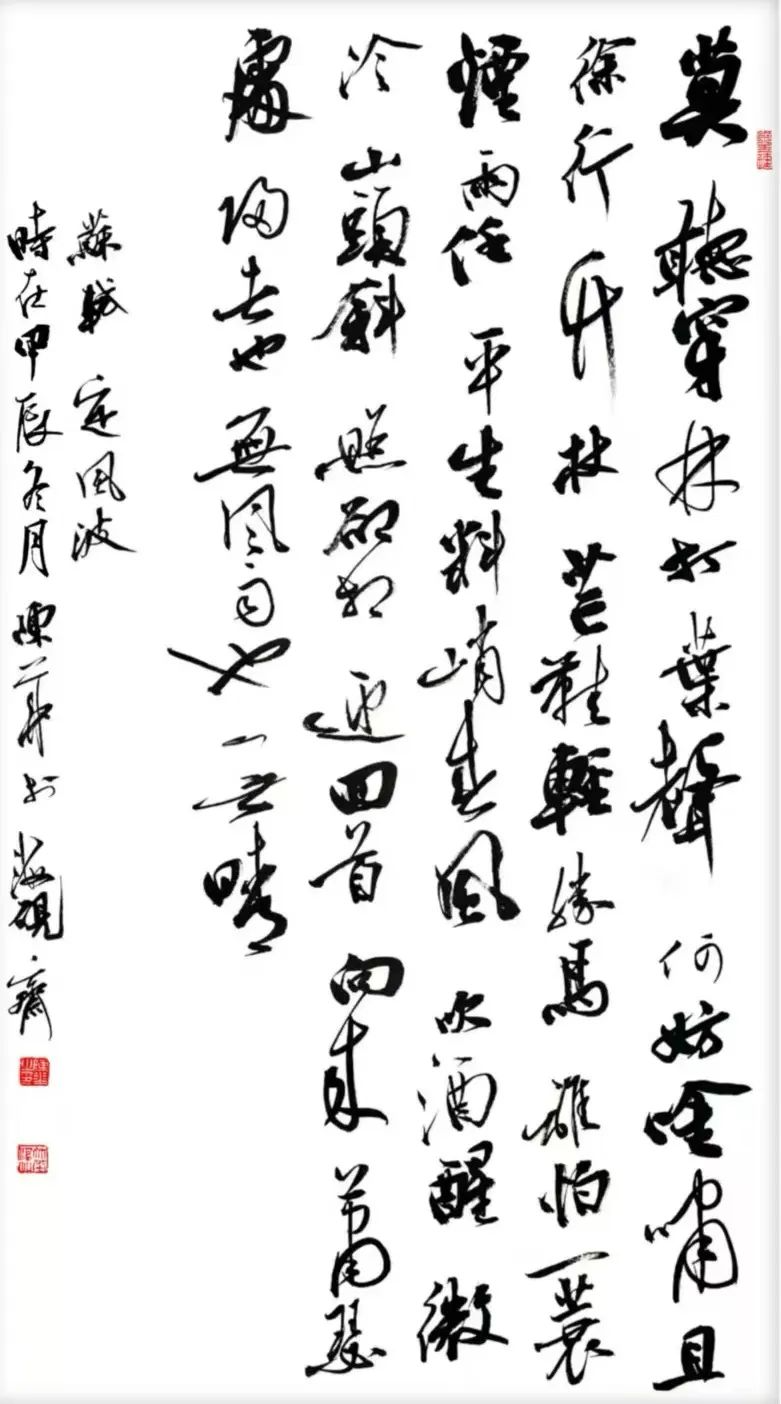 莫聽穿林打葉聲何妨吟嘯且
徐行竹杖芒鞋輕勝馬誰怕一蓑
煙雨任平生料峭春風吹酒醒微
冷山頭斜照卻相迎回首向來蕭瑟
處歸去也無風雨也无晴
蘇軾定風波
時在甲辰冬月陳於硯齋